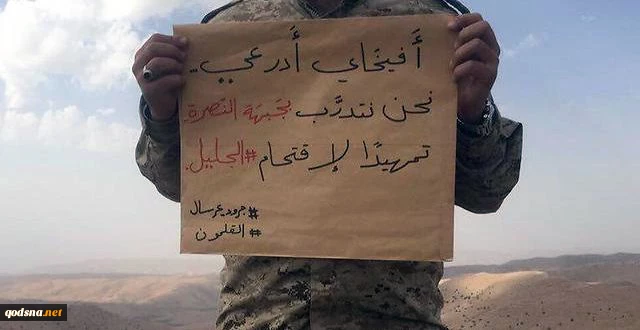 أَفيخَاي أَدرعي..
نحن نتدرَّب بجَبهَة النصرة
تمهيدًا لإقتحام #الجليل.
#جرود_عرسال
#القلمون
qodsna.net